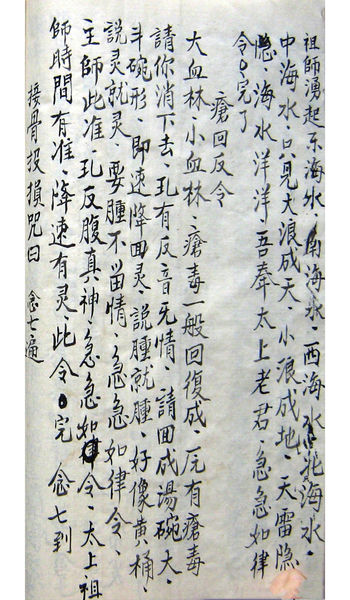 祖師湧起东海水、南海水、西海水、北海水、
中海水、只見大浪成天、小浪成地、天雷隐
隐、海水洋洋、吾奉太上老君、急急如律
令。完了
瘡回反令
大血林、小血林、瘡毒一般回復成、凡有瘡毒
請你消下去、孔有反音无情、請回成湯碗大、
斗碗形、即速降回灵、說腫就腫、好像黄桶、
説灵就灵、要腫不留情、急急如律令、
主師此准、孔反腹真神、急急如律令、太上祖
師時間有准、降速有灵、此令。完 念七到
接骨投損咒曰 念七遍